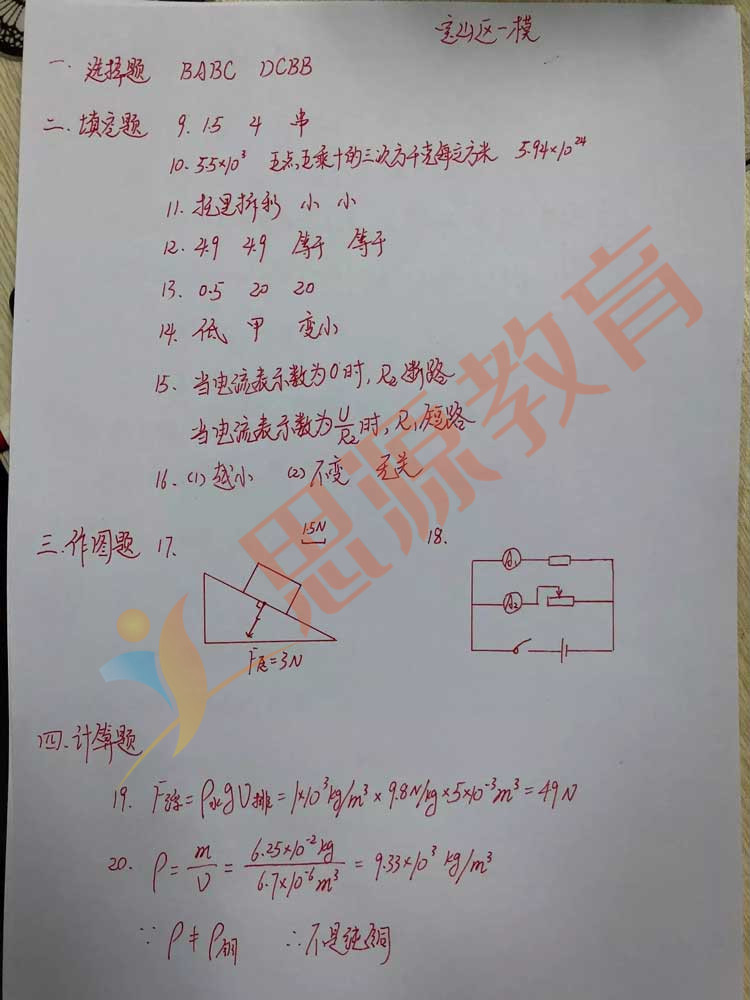 宝山区一模
一. 选择题 BABC DCBB
二. 填空题 9. 1.5 4 串
10. 5.5×10³ 五点五乘十的三次方千克每立方米 5.94×10²⁴
11. 托里拆利 小 小
12. 4.9 4.9 等于 等于
13. 0.5 20 20
14. 低 甲 变小
15. 当电流表示数为0时, R₂断路
当电流表示数为U/R₂时, R₁短路
16. (1) 越小 (2) 不变 无关
三. 作图题 17. 1.5N 18.
A₁
A₂
F压=3N
四. 计算题
19. F浮=ρ水gV排=1×10³kg/m³×9.8N/kg×5×10⁻³m³=49N
20. ρ=m/V=6.25×10⁻²kg/6.7×10⁻⁶m³=9.33×10³kg/m³
∵ρ≠ρ铜 ∴不是纯铜
思源教育